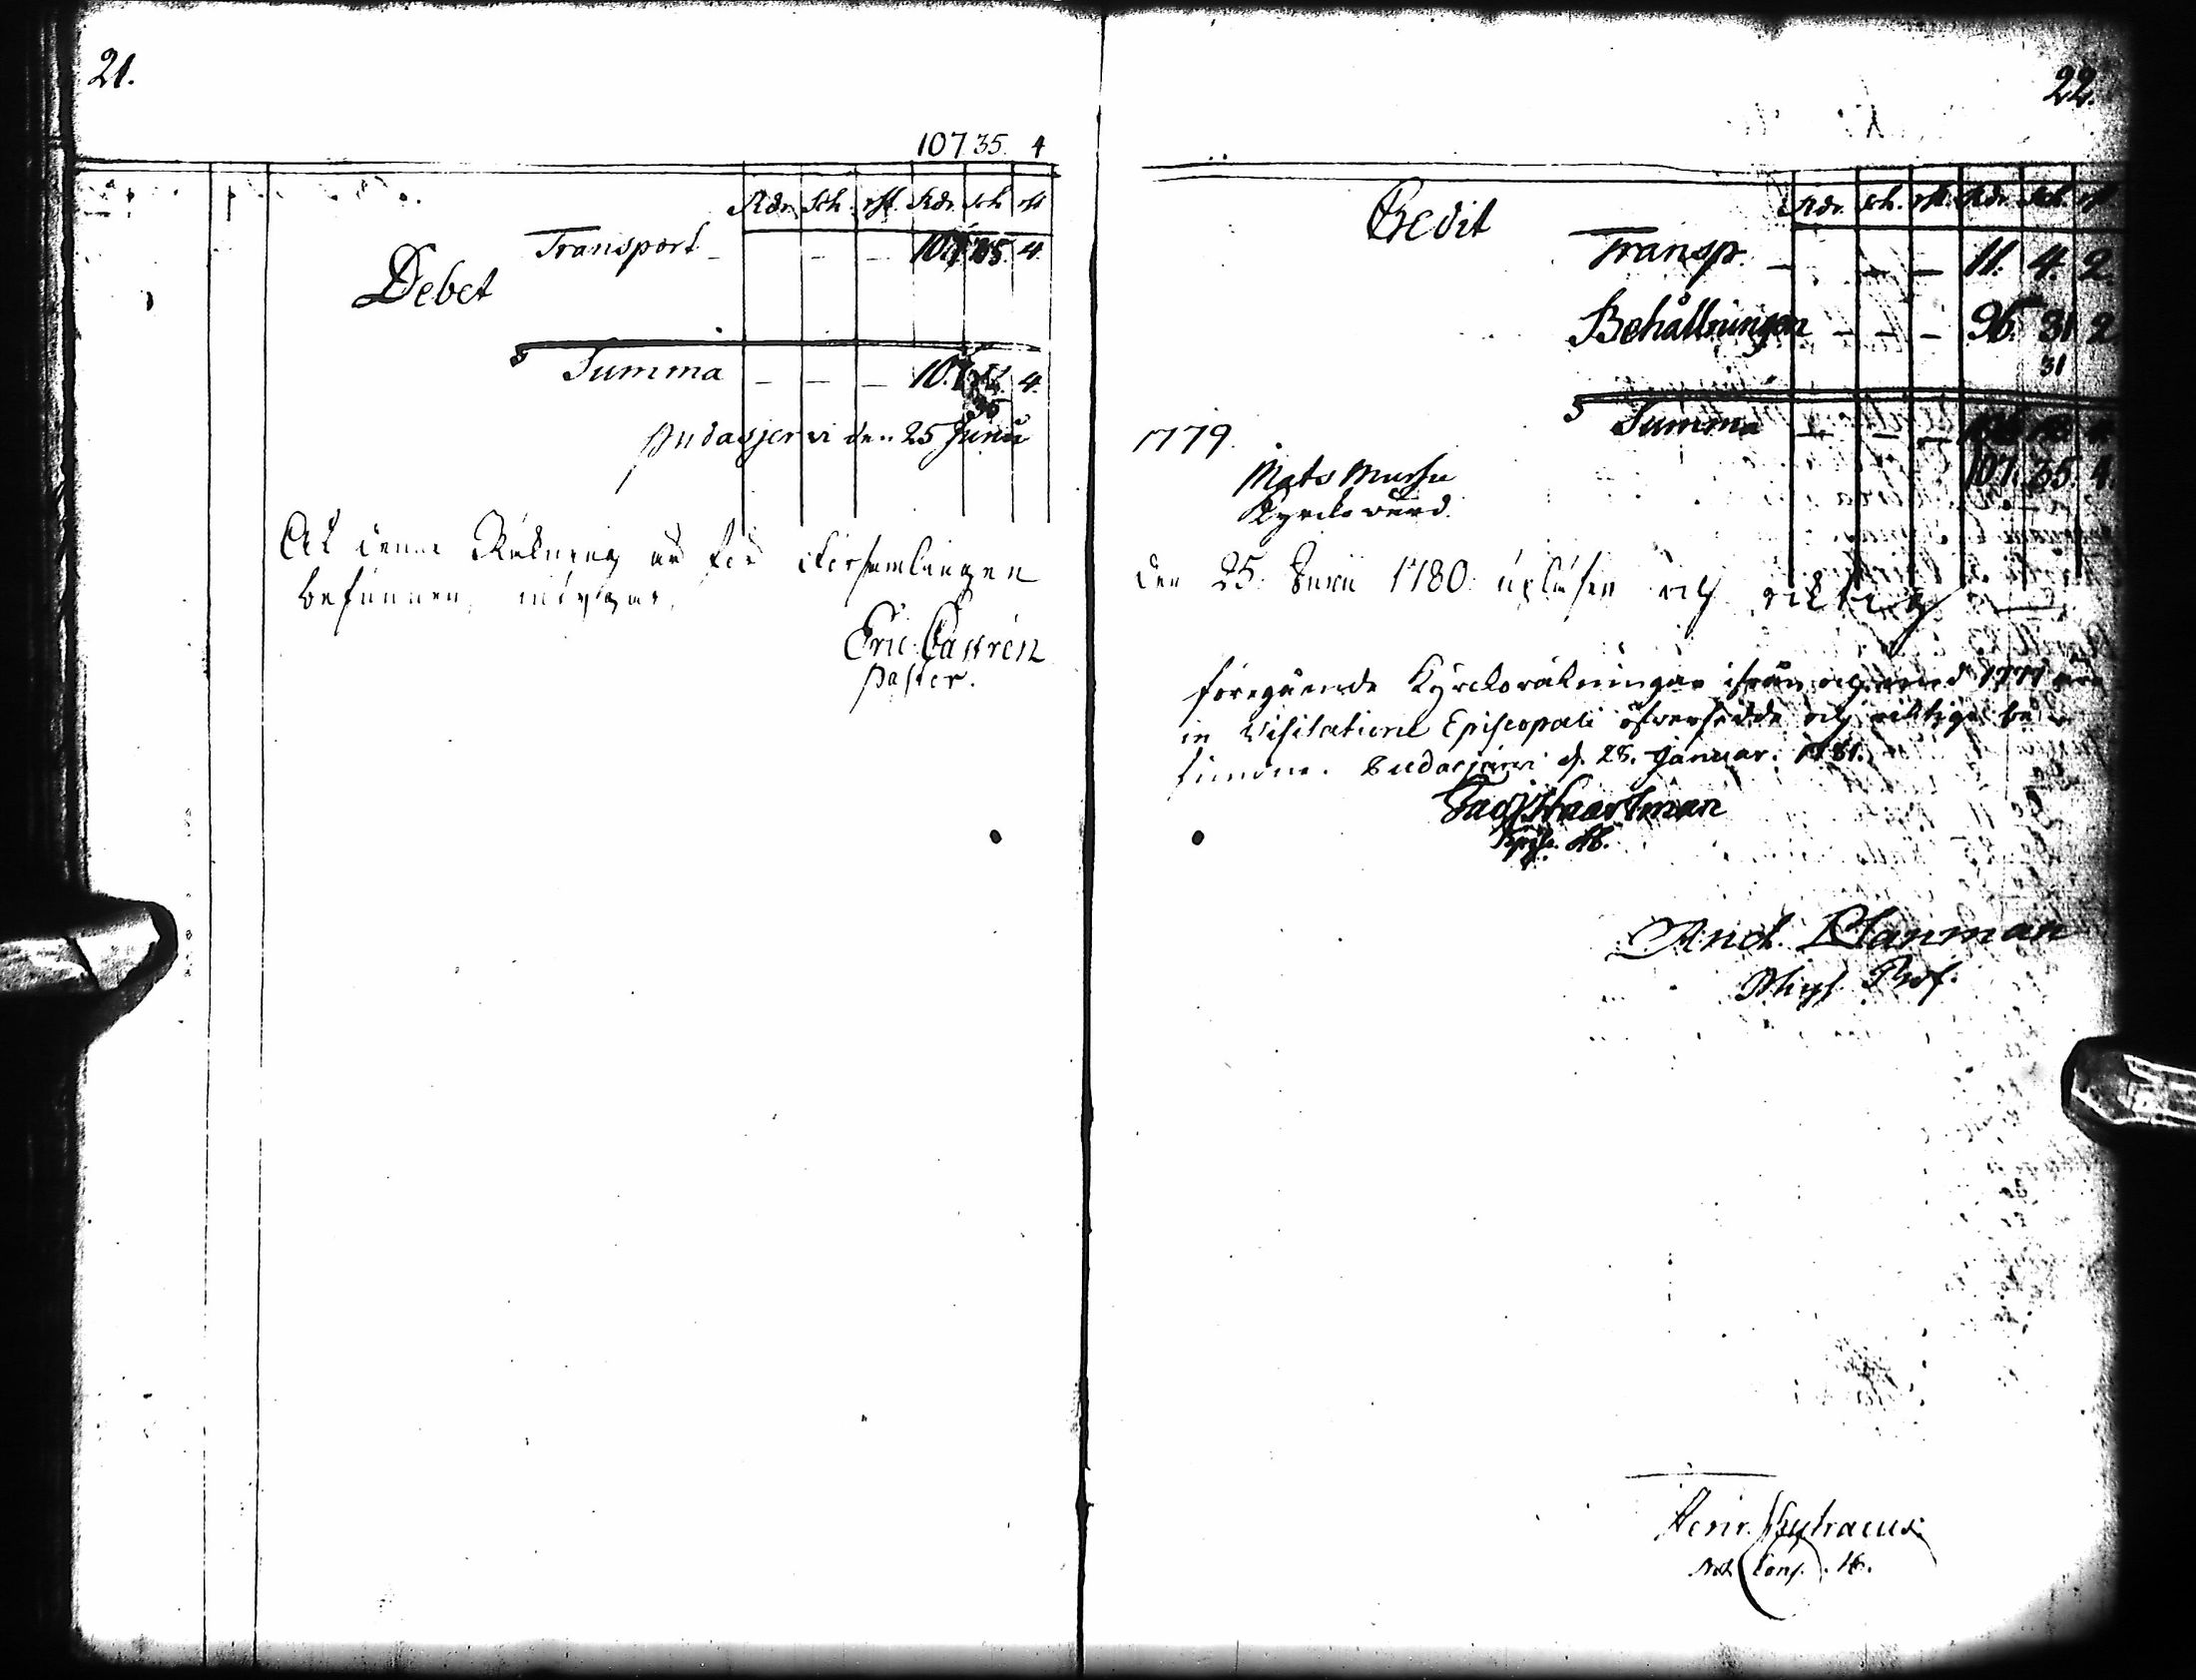 21.
107 35. 4
Rdr. Sch. rst. Rdr. Sch. rst
Transport - - - 107 35. 4.
Debet
Summa - - - 107 4.
35
Pudasjervi den 25 Junii
At denna Räkning är för Församlingen
befunnen
Eric Castrén
Pastor.
22.
Rdr. Sch. rst. Rdr. Sch. rst
Credit
Transp. - - - 11. 4. 2.
Behållningen - - - 96. 31 2
31
Summa - - -
107. 35. 4.
1779.
Mats Mursu
Kyrckowärd.
den 25. Junii 1780. upläsen och riktig
föregående Kyrckoräkningar ifrån och med 1771 äro
in Visitatione Episcopali öfversedde och riktige be-
funne. Pudasjervi d. 28. Januar. 1781.
Jac. Haartman
Episc. Ab.
And. Planman
Phys. Prof.
Henr. 
Not. Cons. Ab.